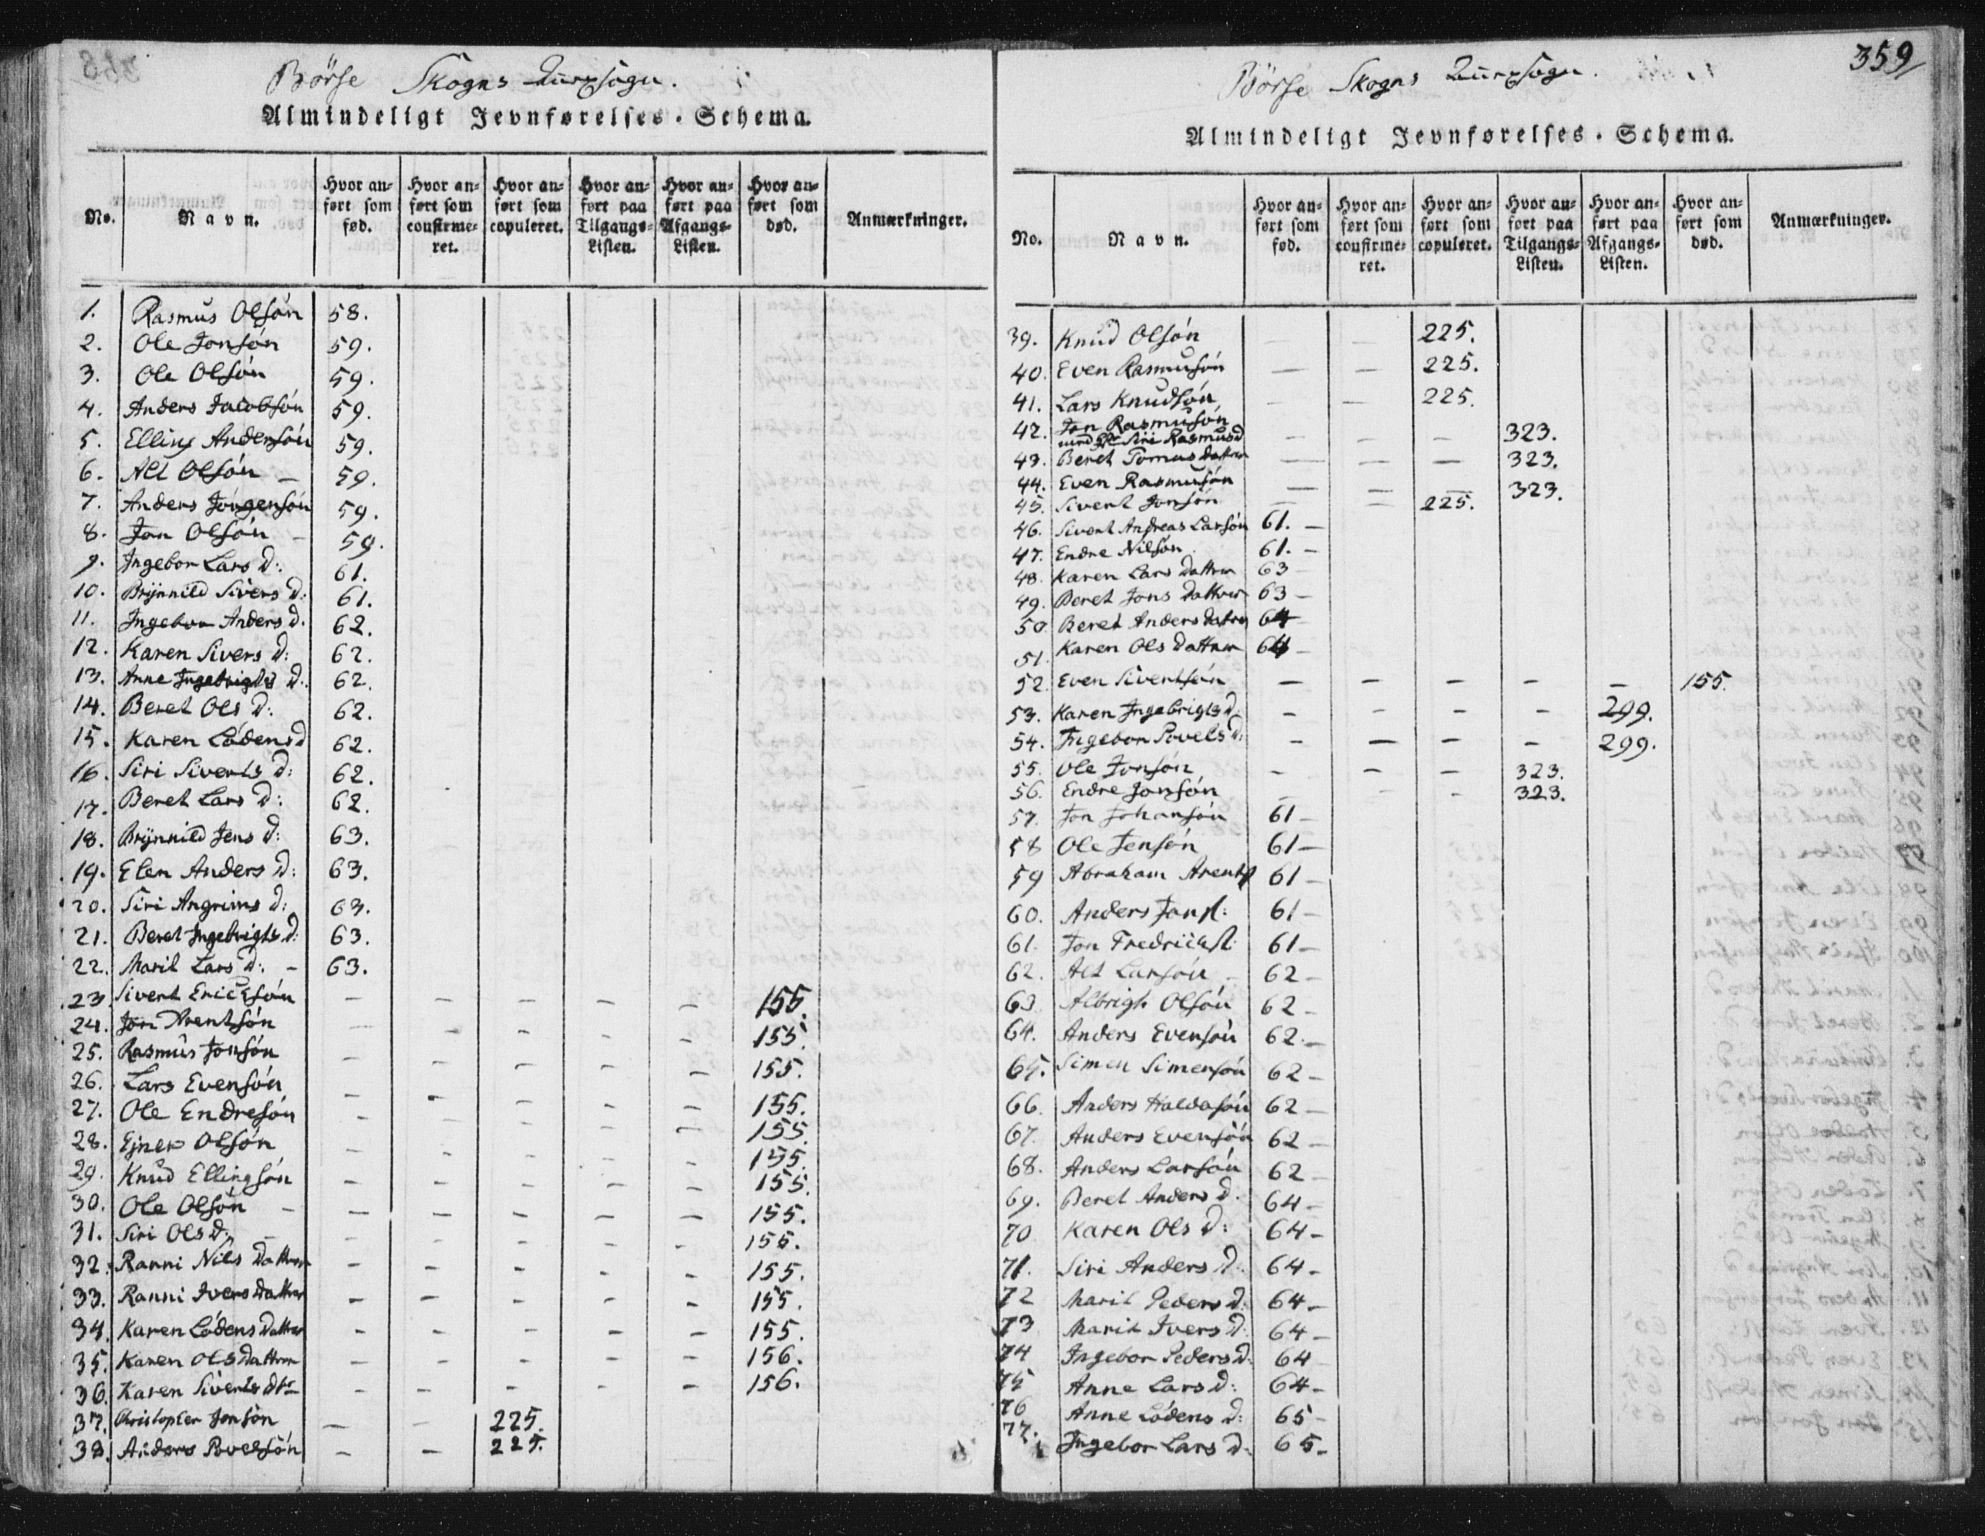 Börse Skogns
Almindeligt Jevnførelses-Schema.
No. Navn. Hvor anført som fød. Hvor anført som confirmeret. Hvor anført som copuleret. Hvor anført paa Tilgangs-Listen. Hvor anført paa Afgangs-Listen. Hvor anført som død. Anmærkninger.
1. Rasmus Olsón 58.
2. Ole Jonsón 59.
3. Ole Olsón 59.
4. Anders Jacobsón 59.
5. Elling Andersón 59.
6. Alt Olsón – 59.
7. Anders Jörgensón 59.
8. Jon Olsón – 59.
9. Ingebor Lars d: 61.
10. Brÿnnild Sivers d: 61.
11. Ingebor Anders d. 62.
12. Karen Sivers d: 62.
13. Anne Ingebrigts d. 62.
14. Beret Ols d: 62.
15. Karen Lódens d 62.
16. Siri Siverts d: 62.
17. Beret Lars d: 62.
18. Brÿnnild Jens d: 63.
19. Elen Anders d: 63.
20. Siri Angrims d: 63.
21. Beret Ingebrigts d: 63.
22. Marit Lars d: – 63.
23 Sivert Ericksón – – – – – 155.
24. Jon Arentsón – – – – – 155.
25. Rasmus Jonsón – – – – – 155.
26. Lars Evensón – – – – – 155.
27. Ole Endresón – – – – – 155
28. Ejner Olsón – – – – – 155
29. Knud Ellingsón – – – – – 155.
30. Ole Olsón – – – – – – 155.
31. Siri Ols d: – – – – – – 155.
32. Ranni Nils Dattrer – – – – – 155.
33. Ranni Ivers Dattrer – – – – – 155.
34. Karen Lódens Dattrer – – – – – 155.
35. Karen Ols Dattrer – – – – – 156.
36. Karen Siverts dtr – – – – – 156.
37. Christopher Jonsón – – 225.
38. Anders Povelsón – – 225.
359
Börse Skogns
Almindeligt Jevnførelses-Schema.
No. Navn. Hvor anført som fød. Hvor anført som confirmeret. Hvor anført som copuleret. Hvor anført paa Tilgangs-Listen. Hvor anført paa Afgangs-Listen. Hvor anført som død. Anmærkninger.
39. Knud Olsón – – 225.
40. Even Rasmusón – – 225.
41. Lars Knudsón – – 225.
42. Jon Rasmusón
Siri Rasmusd – – – 323.
43. Beret Tomas Dattrer – – – 323.
44. Even Rasmusón – – – 323.
45. Sivert Jonsón – – 225.
46. Sivert Andreas Larsón 61. –
47. Endre Nilsón 61. –
48. Karen Lars Dattrer 63 –
49. Beret Jons Dattrer 63 –
50. Beret Anders Datrer 64
51. Karen Ols Dattrer 64
52. Even Sivertsón – – – – – 155.
53. Karen Ingebrigts d: – – – – 299.
54. Ingebor Povels d: – – – – 299.
55. Ole Jonsón – – – 323.
56. Endre Jonsón – – – 323.
57. Jon Johansón 61 –
58 Ole Jensón 61 –
59 Abraham Arents 61 –
60. Anders Jons: 61 –
61. Jon Fredricks: 61 –
62. Alt Larsón – 62 –
63. Albrigh Olsón 62 –
64. Anders Evensón 62. –
65. Simen Simensón 62 –
66. Anders Haldosón 62 –
67. Anders Evensón 62 –
68. Anders Larsón 62 –
69. Beret Anders d. 64 –
70 Karen Ols d: 64 –
71. Siri Anders d. 64 –
72 Marit Peders d: 64 –
73 Marit Ivers d. 64 –
74 Ingebor Peders d: 64
75 Anne Lars d: 64 –
76 Anne Lódens d: 65 –
77. Ingebor Lars d: 65 –